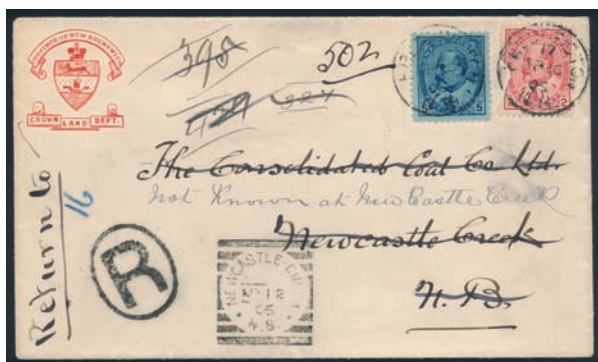 PROVINCE OF NEW BRUNSWICK
CROWN LAND DEPT.
398
502
424 324
5 5
2
The Consolidated Coal Co Ltd.
Not Known at New Castle Creek
Newcastle Creek
N.B.
Return to
16
R
NEWCASTLE
12
05
N.B.